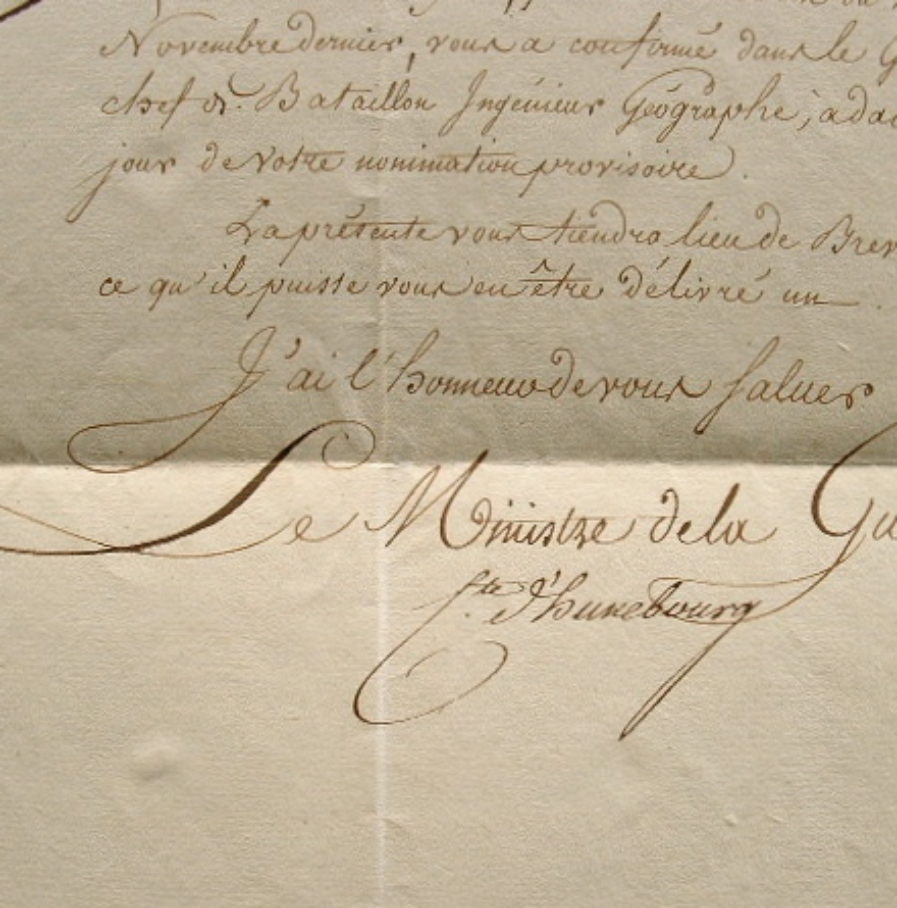 Novembre dernier, vous a confirmé dans le G
chef de Bataillon Ingénieur Géographe, à da
jour de votre nomination provisoire.
La présente vous tiendra lieu de Brev
ce qu'il puisse vous en être délivré un.
J'ai l'honneur de vous saluer
Le Ministre de la Gu
Cte d'hunebourg